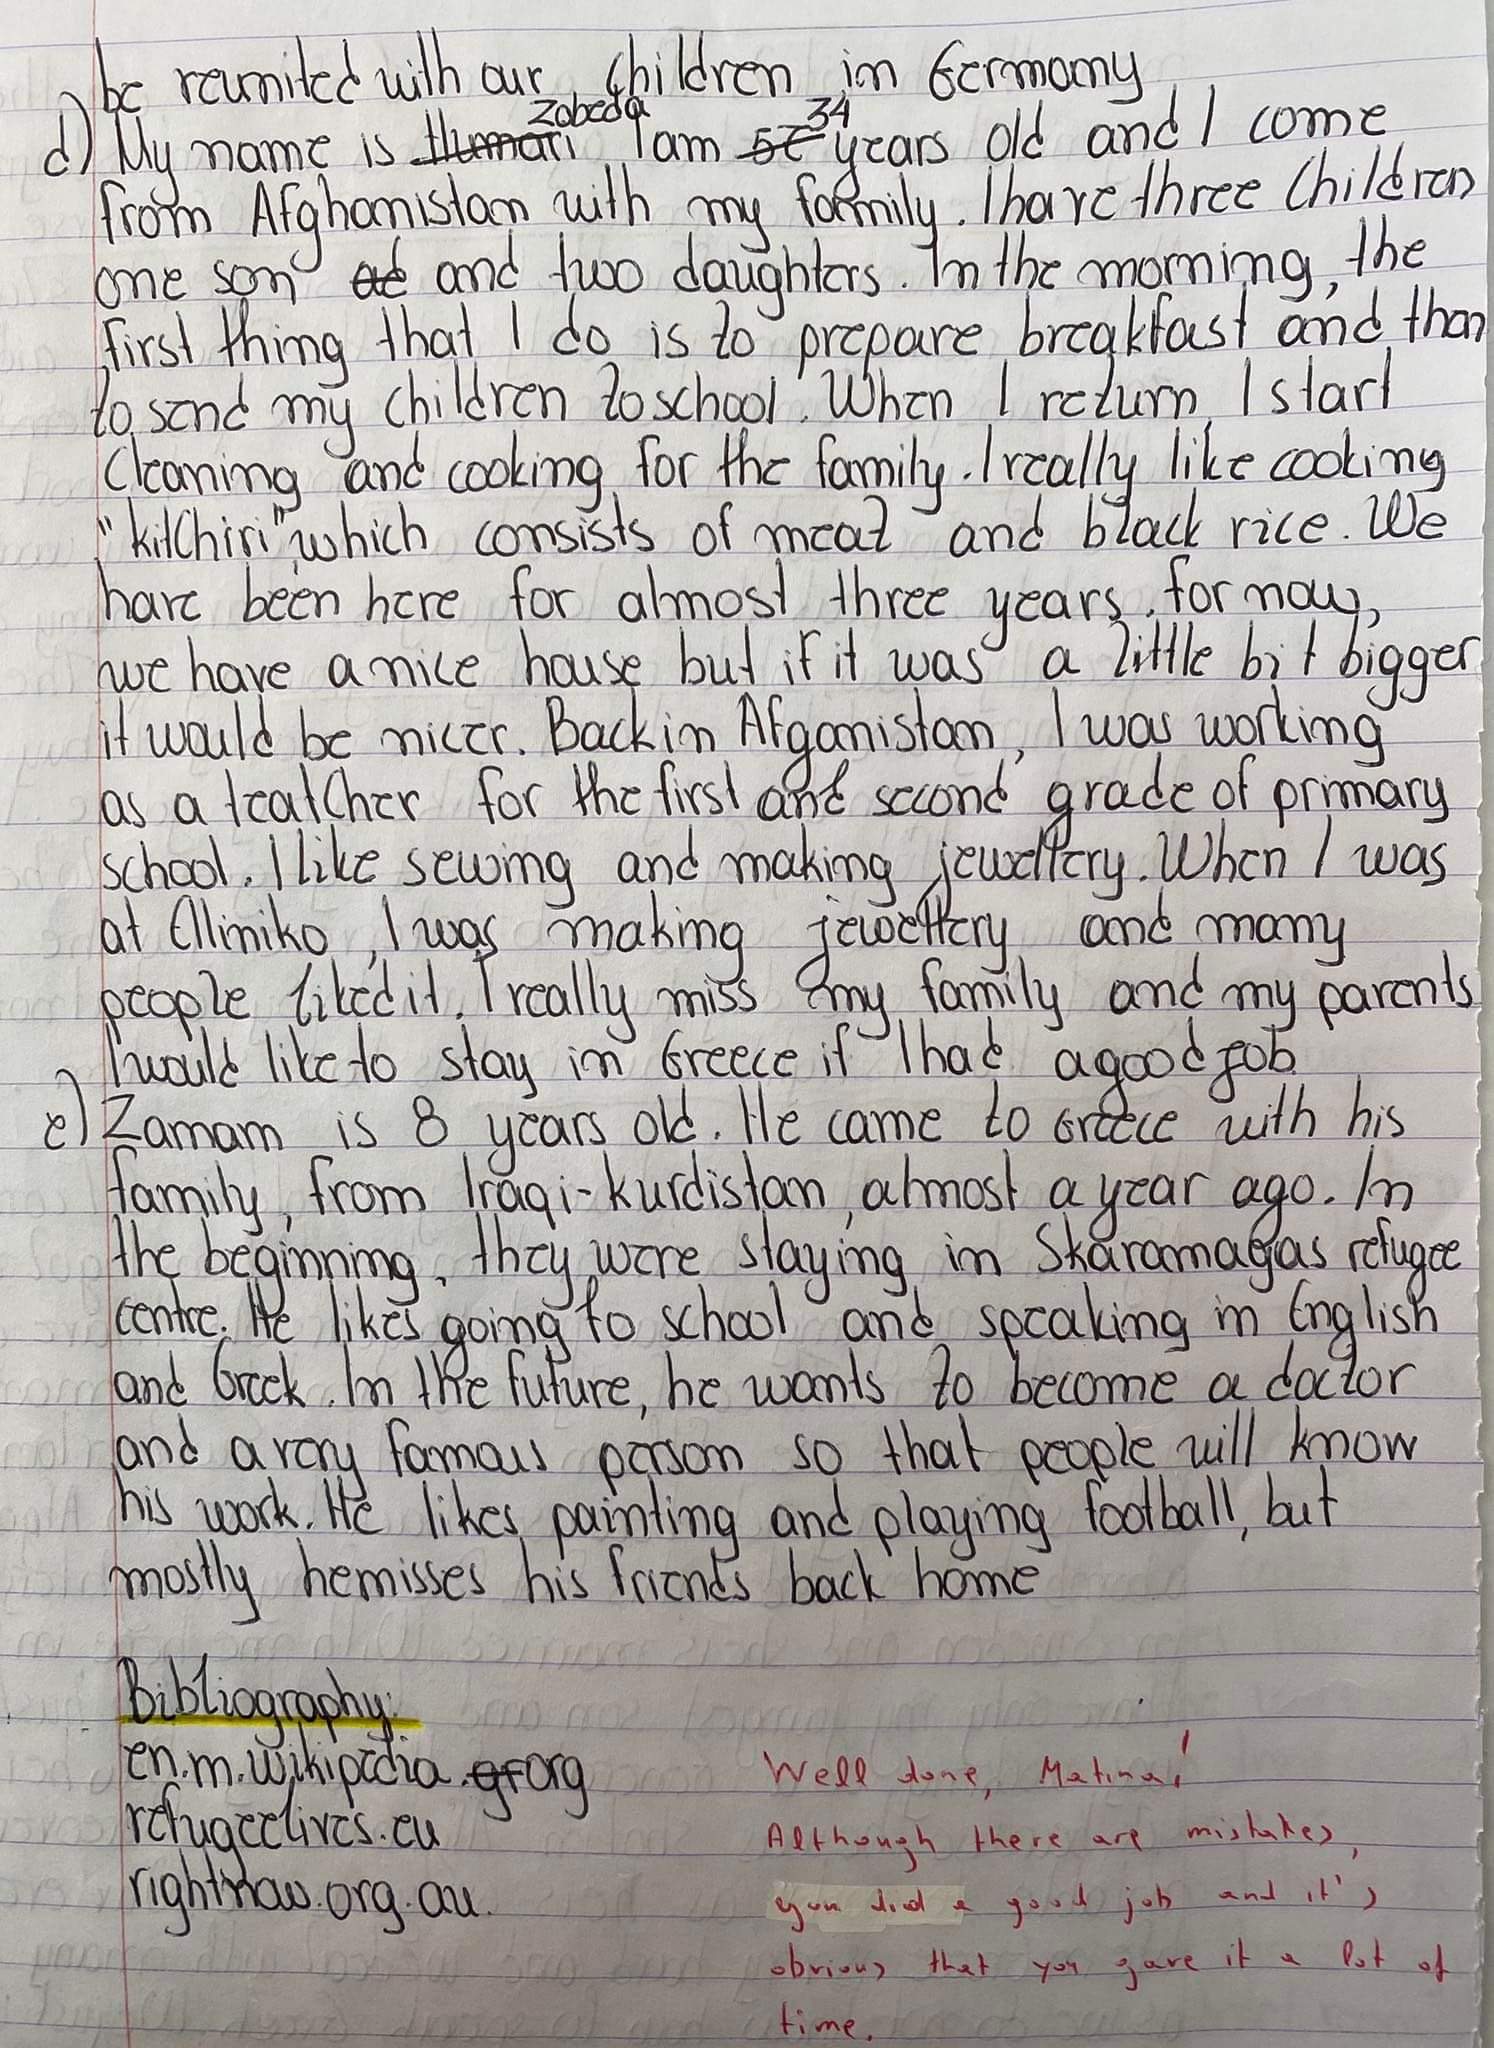 be reunited with our children in Germany
d) My name is Humari Zobeda I am 5t 34 years old and I come
from Afghanistan with my family. I have three children
one son ad and two daughters. In the morning, the
first thing that I do is to prepare breakfast and than
to send my children to school. When I return, I start
cleaning and cooking for the family. I really like cooking
"kitChiri", which consists of meat and black rice. We
have been here for almost three years. For now,
we have a nice house but if it was a little bit bigger
it would be nicer. Back in Afganistan, I was working
as a teatcher for the first and second grade of primary
school. I like sewing and making jewellery. When I was
at Elliniko, I was making jewellery and many
people liked it. I really miss my family and my parents
I would like to stay in Greece if I had a good job.
e) Zamam is 8 years old. He came to Greece with his
family, from Iraqi-kurdistan, almost a year ago. In
the beginning, they were staying in Skaramagas refugee
centre. He likes going to school and speaking in English
and Greek. In the future, he wants to become a doctor
and a very famous person so that people will know
his work. He likes painting and playing football, but
mostly he misses his friends back home
Bibliography:
en.m.wikipedia.gr org
refugeelives.eu
rightnow.org.au.
Well done, Matina!
Although there are mistakes,
you did a good job and it's
obvious that you gave it a lot of
time.